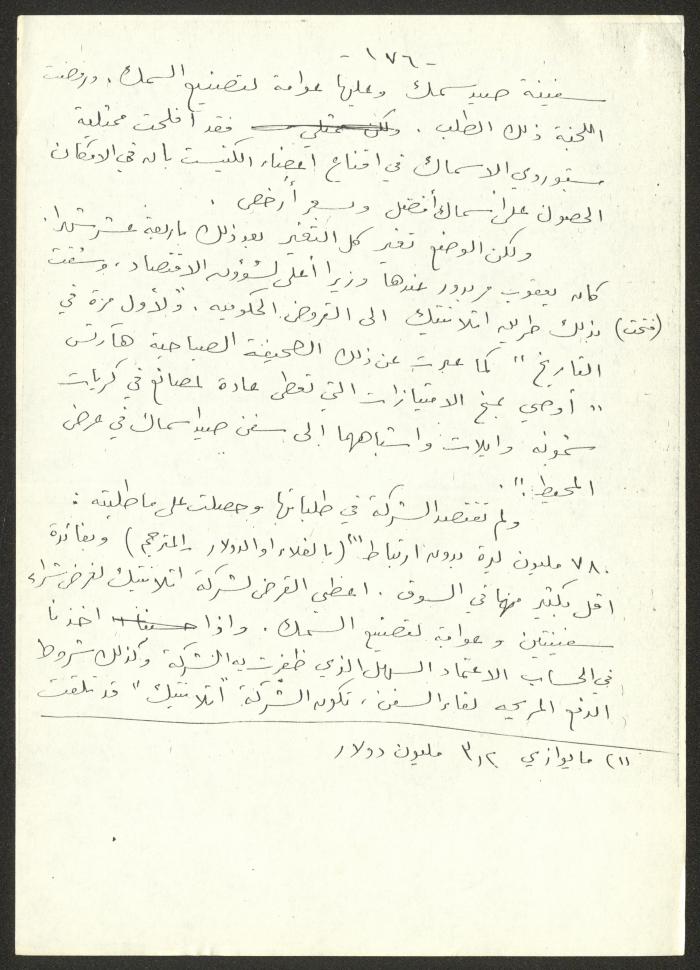 -١٧٦-
سفينة صيد سمك وعليها عوامة لتصنيع السمك. ورفضت
اللجنة ذلك الطلب. ولكن ممثلي فقد أفلحت ممثلية
مستوردي الاسماك في اقناع اعضاء الكنيست بانه في الامكان
الحصول على اسماك أفضل وبسعر أرخص.
ولكن الوضع تغير كل التغير بعد ذلك باربعة عشر شهرا.
كان يعقوب مريدور عندها وزيرا أعلى لشؤون الاقتصاد، وشقت
(فتحت) بذلك طريق اتلانتيك الى القروض الحكومية. "ولأول مرة في
التاريخ" كما عبرت عن ذلك الصحيفة الصباحية هآرتس
"أوصي بمنح الامتيازات التي تعطى عادة لمصانع في كريات
شمونه وايلات واشباهها الى سفن صيد اسماك في عرض
المحيط".
ولم تقتصد الشركة في طلباتها وحصلت على ما طلبته:
٧٨٠ مليون ليرة بدون ارتباط (١) (بالغلاء او الدولار - المترجم) وبفائدة
اقل بكثير منها في السوق. اعطي القرض لشركة اتلانتيك لغرض شراء
سفينتين وعوامة لتصنيع السمك. واذا اخذنا
في الحساب الاعتماد السهل الذي ظفرت به الشركة وكذلك شروط
الدفع المريحه لقاء السفن، تكون الشركة "اتلانتيك" قد تلقت
(١) ما يوازي ٣،٢ مليون دولار